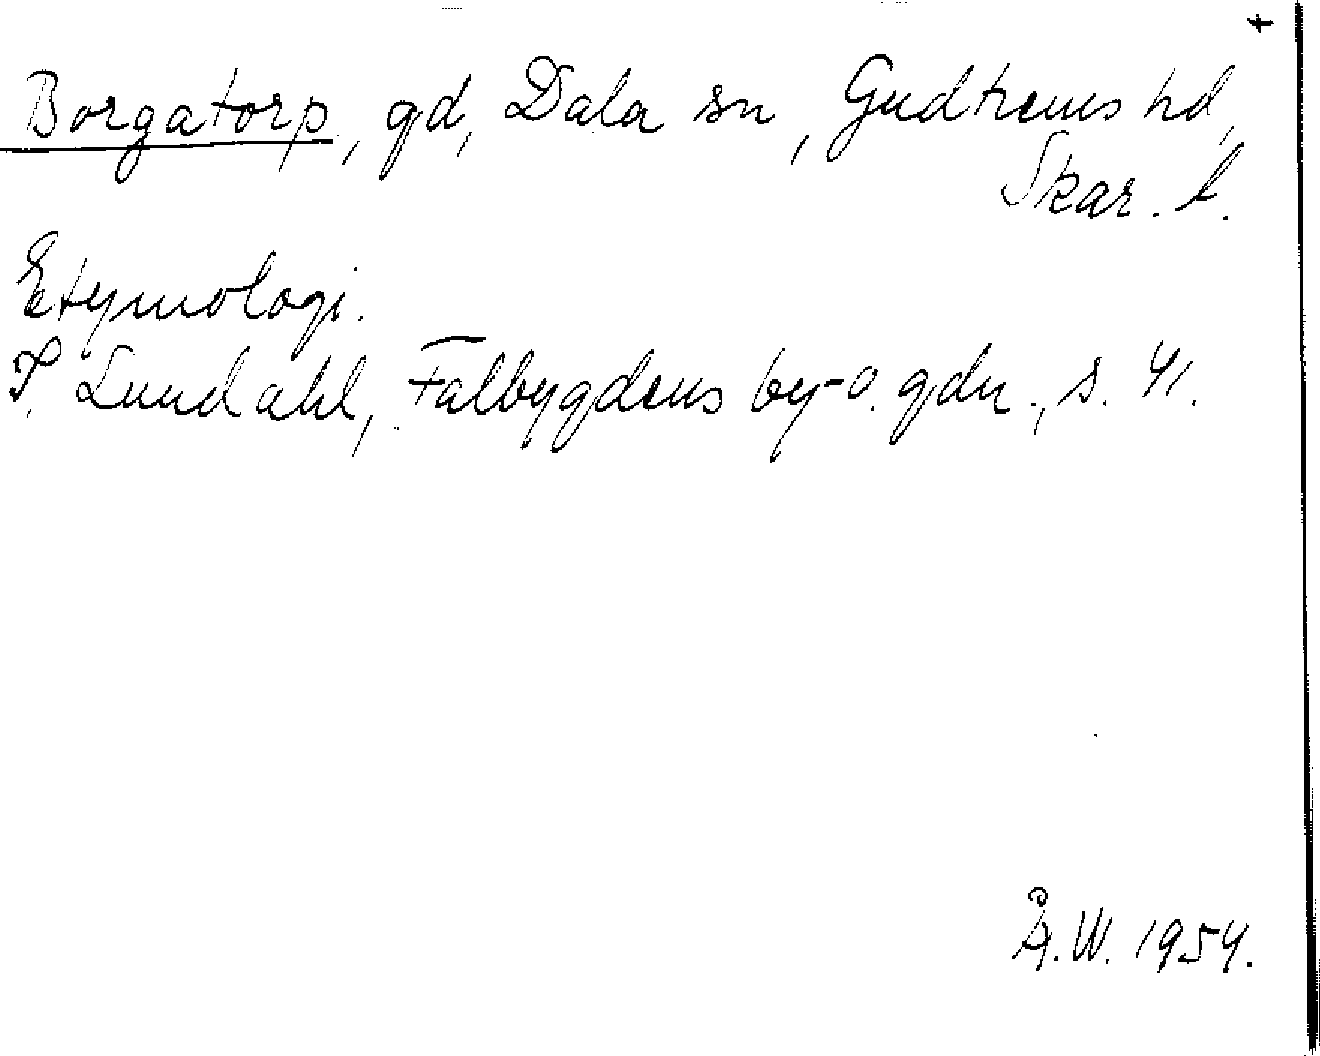 Borgatorp, gd, Dala sn, Gudhems hd,
Skar. l.
Etymologi.
I. Lundahl, Falbygdens by- o. gdn., s. 41.
Å.W. 1954.